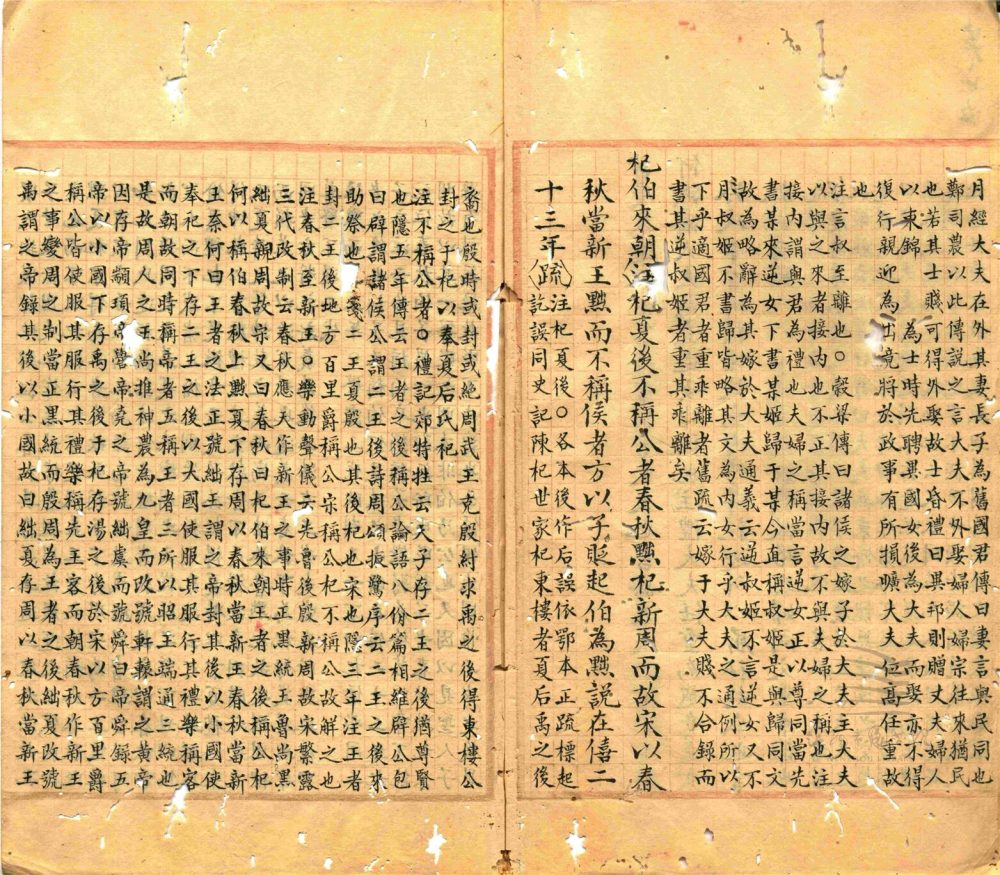 月經大夫在外其妻長子為舊國君傳曰妻言與民同也
鄭司農以此傳說之言大夫不外娶婦人婦宗往來猶民
也若其士賤可得外娶故士昏禮曰異邦則贈丈夫婦人
以束錦 為士時先聘異國女後為大夫而娶亦不得
復行親迎為出竟將於政事有所損曠大夫位高任重故
也
注言叔至離也○穀梁傳曰諸侯之嫁子於大夫主大夫
以與之來者接內也不正其接內故不與夫婦之稱也注
接內謂與君為禮也夫婦之稱當言逆女正以尊同當先
書某來逆女下書某姬歸于某今直稱叔姬是與歸同文
故為略辭為其嫁於大夫通義云逆叔姬不言逆女又不
月叔姬不書歸皆略其文為內女行乎大夫之通例所以
下乎適國君者重乖離者舊疏云嫁于大夫賤不合錄而
書其逆叔姬者重其乖離矣
杞伯來朝注杞夏後不稱公者春秋黜杞新周而故宋以春
秋當新王黜而不稱侯者方以子貶起伯為黜說在僖二
十三年疏注杞夏後○各本後作后誤依鄂本正疏標起
訖誤同史記陳杞世家杞東樓者夏后禹之後
裔也殷時或封或絕周武王克殷紂求禹之後得東樓公
封之于杞以奉夏后氏祀
注不稱公者○禮記郊特牲云天子存二王之後猶尊賢
也隱五年傳云王者之後稱公論語八份篇相維辟公包
曰辟謂諸侯公謂二王後詩周頌振鷺序云二王之後來
助祭也箋二王夏殷也其後杞也宋也隱三年注王者
封二王後地方百里爵稱公宋稱公杞不稱公故解之也
注春秋至新王○樂動聲儀云先魯後殷新周故宋繁露
三代改制云春秋應天作新王之事時正黑統王魯尚黑
絀夏親周故宋又曰春秋曰杞伯來朝王者之後稱公杞
何以稱伯春秋上黜夏下存周以春秋當新王春秋當新
王奈何曰王者之法正號絀王謂之帝封其後以小國使
奉祀之下存二王之後以大國使服其服行其禮樂稱客
而朝故同時稱帝者五稱王者三所以昭王瑞通三統也
是故周人之王尚推神農為九皇而改號軒轅謂之黃帝
因存帝顓頊帝嚳帝堯之帝號絀虞而號舜曰帝舜錄五
帝以小國下存禹之後于杞存湯之後於宋以方百里爵
稱公皆使服其服行其禮樂稱先王客而朝春秋作新王
之事變周之制當正黑統而殷周為王者之後絀夏改號
禹謂之帝錄其後以小國故曰絀夏存周以春秋當新王